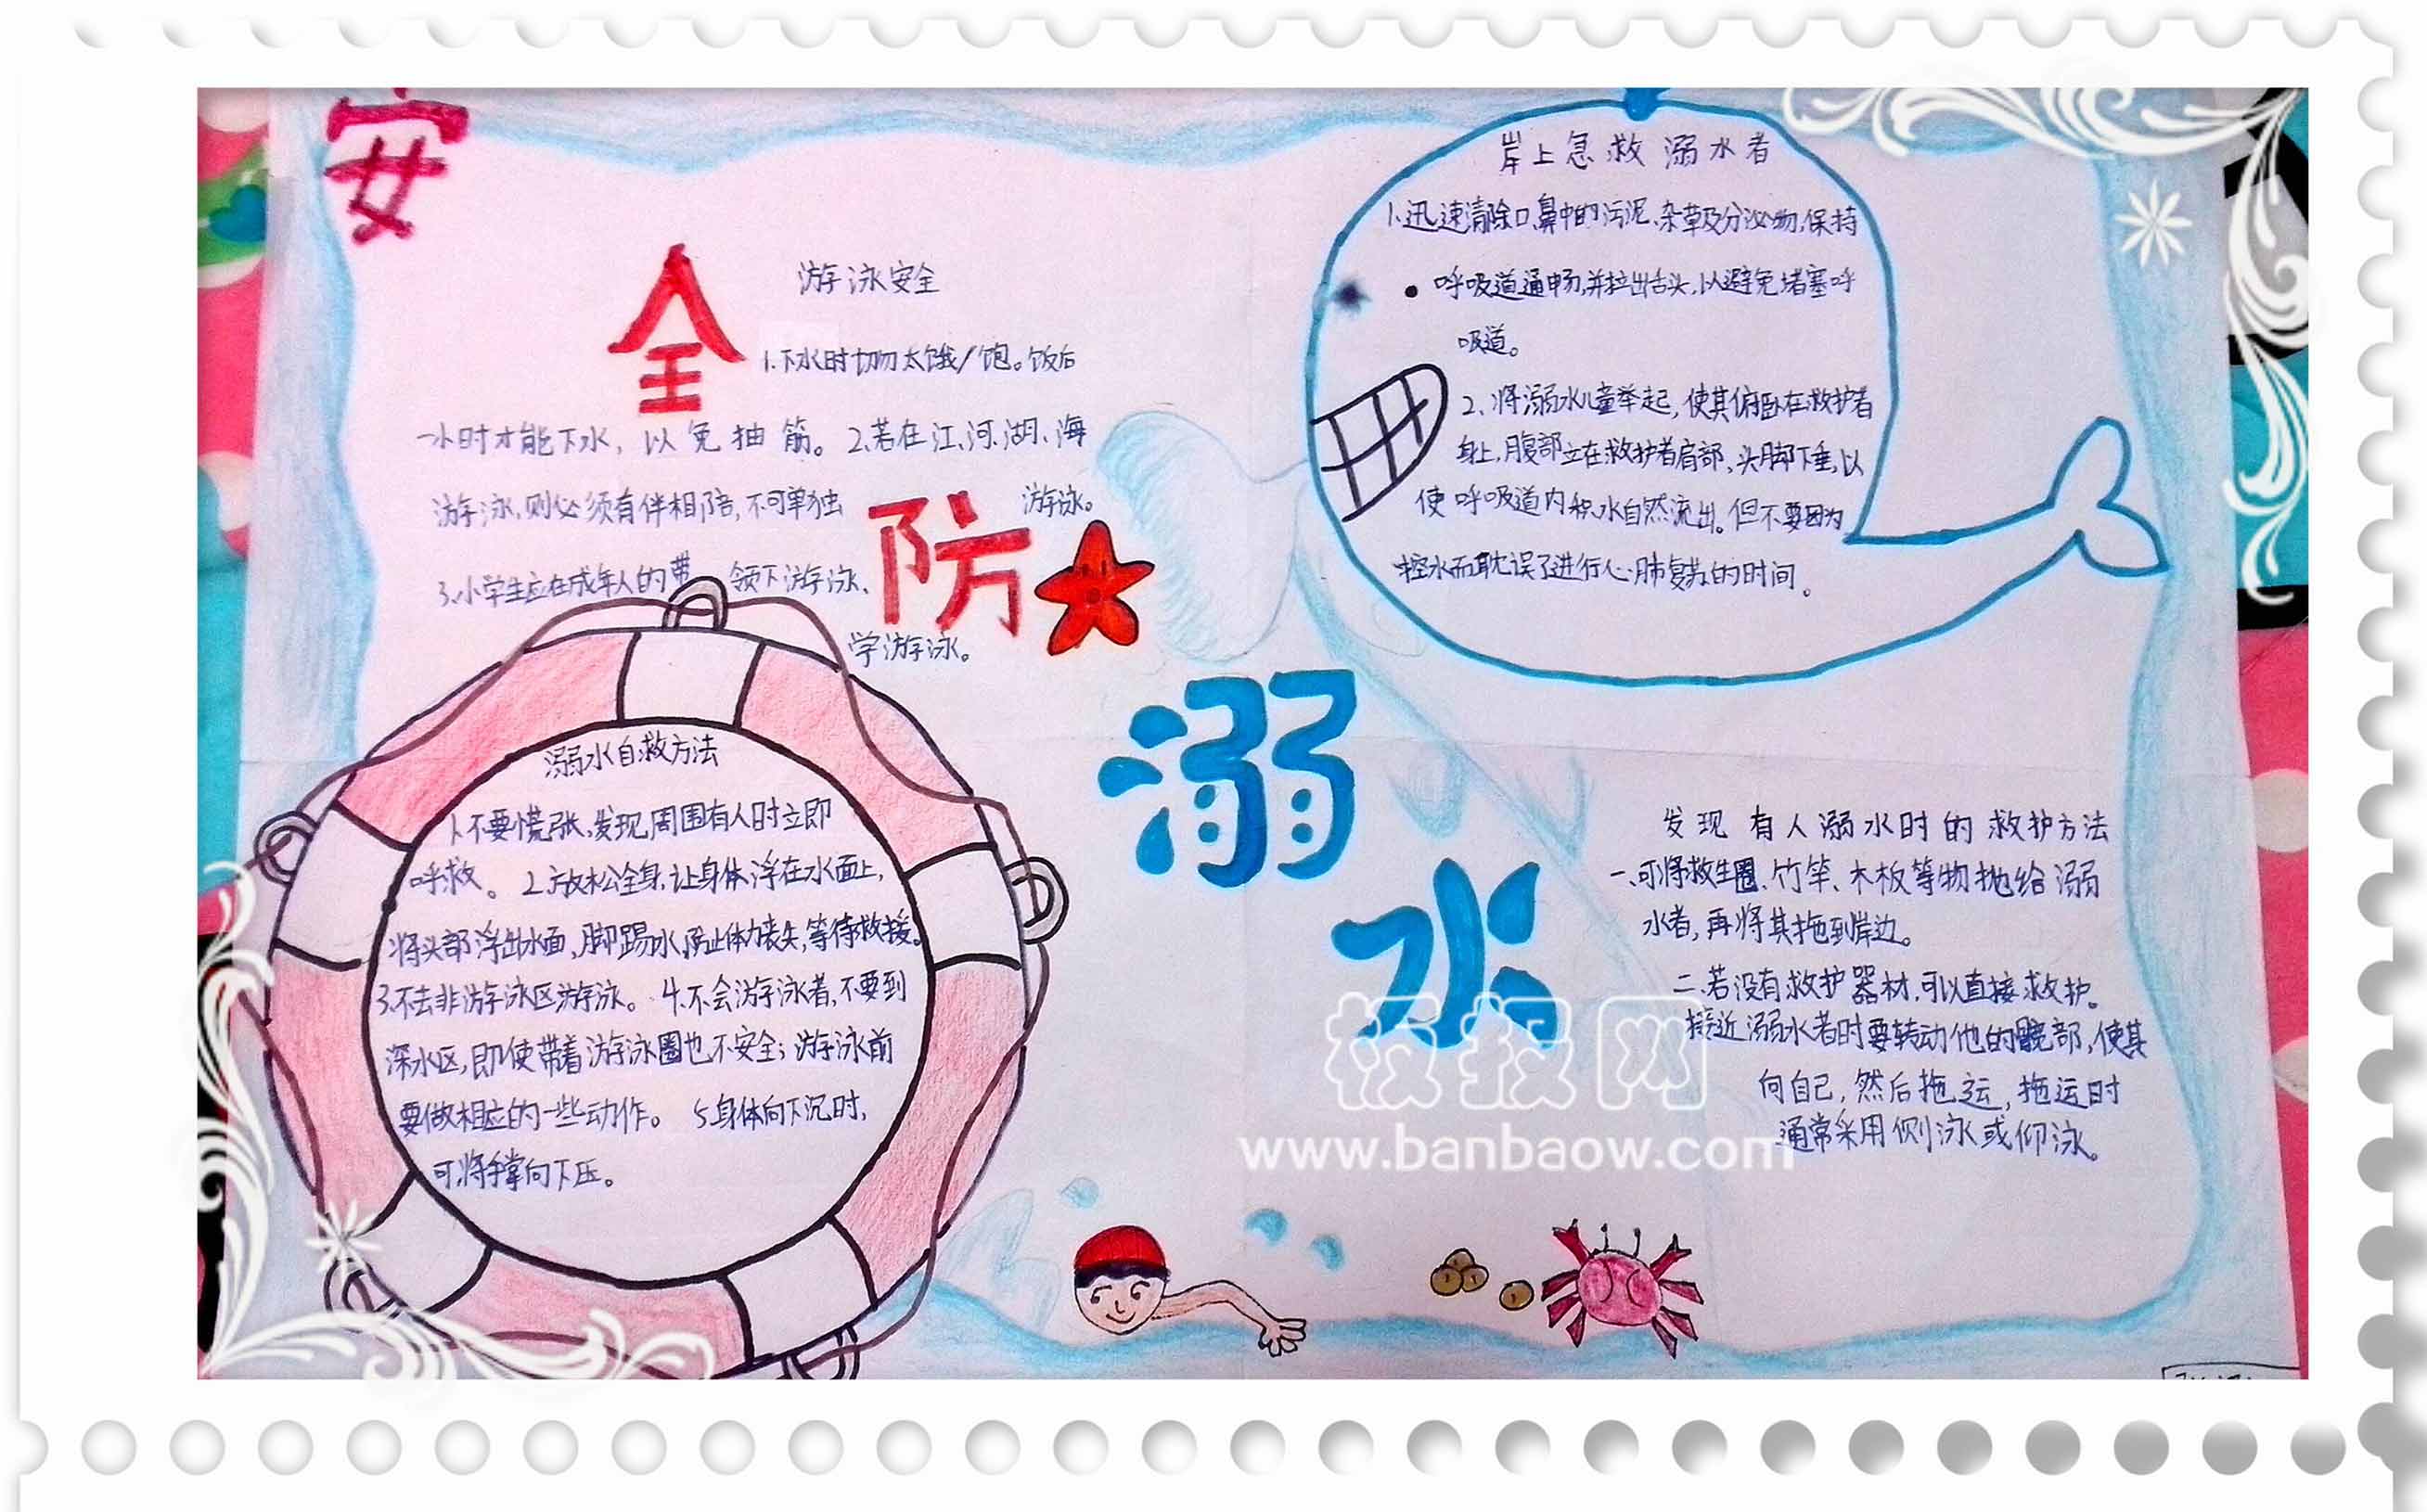 安
全
防
溺
水
游泳安全
1.下水时切勿太饿/饱。饭后
一小时才能下水，以免抽筋。2.若在江、河、湖、海
游泳,则必须有伴相陪,不可单独 游泳。
3.小学生应在成年人的带 领下游泳、
学游泳。
岸上急救溺水者
1.迅速清除口鼻中的污泥、杂草及分泌物,保持
呼吸道通畅,并拉出舌头,以避免堵塞呼
吸道。
2、将溺水儿童举起,使其俯卧在救护者
身上,腹部立在救护者肩部、头脚下垂,以
使呼吸道内积水自然流出。但不要因为
控水而耽误了进行心肺复苏的时间。
溺水自救方法
1.不要慌张,发现周围有人时立即
呼救。2.放松全身,让身体浮在水面上,
将头部浮出水面,脚踢水,防止体力丧失,等待救援。
3.不去非游泳区游泳。4.不会游泳者,不要到
深水区,即使带着游泳圈也不安全；游泳前
要做相应的一些动作。5.身体向下沉时,
可将手掌向下压。
发现有人溺水时的救护方法
一、可将救生圈、竹竿、木板等物抛给溺
水者,再将其拖到岸边。
二、若没有救护器材,可以直接救护。
接近溺水者时要转动他的髋部,使其
向自己,然后拖运,拖运时
通常采用侧泳或仰泳。
板报网
www.banbaow.com